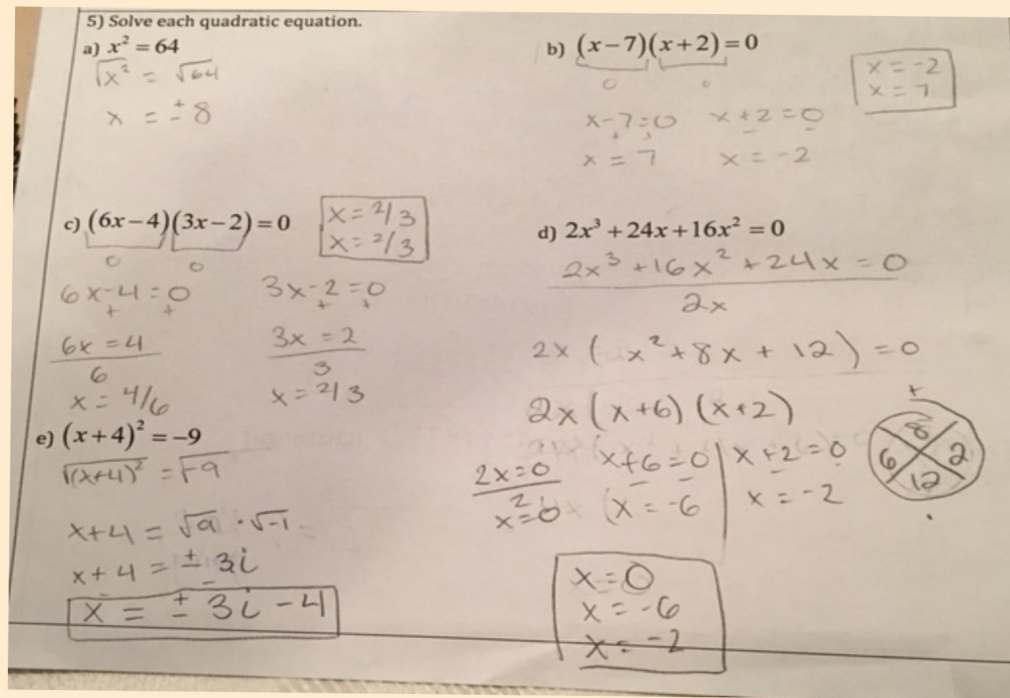 5) Solve each quadratic equation.
a) x² = 64
√x² = √64
x = ± 8
b) (x−7)(x+2) = 0
0 0
x-7=0 x+2=0
+ -  -
x = 7 x = -2
x = -2
x = 7
c) (6x−4)(3x−2) = 0
0 0
x = 2/3
x = 2/3
6x-4=0 3x-2=0
+ + + +
6x = 4 3x = 2
6 3
x = 4/6 x = 2/3
d) 2x³ + 24x + 16x² = 0
2x³ + 16x² + 24x = 0
2x
2x ( x² + 8x + 12 ) = 0
2x (x+6) (x+2)
2x=0 x+6=0 x+2=0
2
x=0 (x = -6 x = -2
+
8
6 2
12
.
x=0
x = -6
x = -2
e) (x+4)² = −9
√(x+4)² = √-9
x+4 = √9 · √-1
x+4 = ± 3i
x = ± 3i - 4